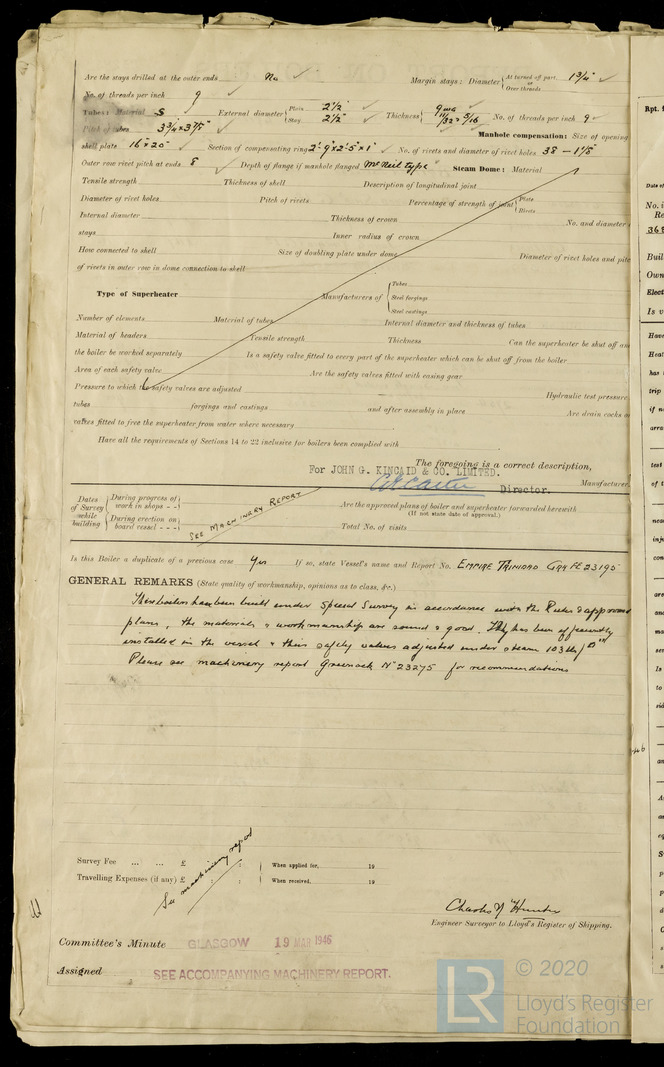 Are the stays drilled at the outer ends No ✓ Margin stays: Diameter { At turned off part, 1 3/4" ✓ or Over threads
No. of threads per inch 9 ✓
Tubes: Material S ✓ External diameter { Plain 2 1/2" Stay 2 1/2" ✓ Thickness { 9 WG 11/32 & 5/16 ✓ No. of threads per inch 9 ✓
Pitch of tubes 3 3/4" x 3 7/8" ✓ Manhole compensation: Size of opening
shell plate 16" x 20" ✓ Section of compensating ring 2'-9" x 2'-5" x 1" ✓ No. of rivets and diameter of rivet holes 38 — 1 1/8"
Outer row rivet pitch at ends 8 ✓ Depth of flange if manhole flanged McNeil type ✓ Steam Dome: Material
Tensile strength Thickness of shell Description of longitudinal joint
Diameter of rivet holes Pitch of rivets Percentage of strength of joint { Plate Rivets
Internal diameter Thickness of crown No. and diameter
stays Inner radius of crown
How connected to shell Size of doubling plate under dome Diameter of rivet holes and pitc
of rivets in outer row in dome connection to shell
Type of Superheater Manufacturers of { Tubes Steel forgings Steel castings
Number of elements Material of tubes Internal diameter and thickness of tubes
Material of headers Tensile strength Thickness Can the superheater be shut off an
the boiler be worked separately Is a safety valve fitted to every part of the superheater which can be shut off from the boiler
Area of each safety valve Are the safety valves fitted with easing gear
Pressure to which the safety valves are adjusted Hydraulic test pressure:
tubes forgings and castings and after assembly in place Are drain cocks o
valves fitted to free the superheater from water where necessary
Have all the requirements of Sections 14 to 22 inclusive for boilers been complied with
The foregoing is a correct description,
For JOHN G. KINCAID & CO. LIMITED.
Director. Manufacturer.
Dates of Survey while building { During progress of work in shops - - } { During erection on board vessel - - - } SEE MACHINERY REPORT
Are the approved plans of boiler and superheater forwarded herewith
(If not state date of approval.)
Total No. of visits
Is this Boiler a duplicate of a previous case Yes If so, state Vessel's name and Report No. EMPIRE TRINIDAD GRK FE 23195
GENERAL REMARKS (State quality of workmanship, opinions as to class, &c.)
These boilers have been built under Special Survey in accordance with the Rules & approved
plans, the materials & workmanship are sound & good. They has been efficiently
installed in the vessel & their safety valves adjusted under steam 103 lbs/□"
Please see machinery report Greenock No 23275 for recommendations
Survey Fee ... ... £ : : When applied for, 19
Travelling Expenses (if any) £ : : When received, 19
See machinery report
Charles N Hunter
Engineer Surveyor to Lloyd's Register of Shipping.
Committee's Minute GLASGOW 19 MAR 1946
Assigned SEE ACCOMPANYING MACHINERY REPORT.
Rpt.
Date of
No. i
Re
368
Buil
Own
Elect
Is v
Have
Heat
has
trip
if n
arra
test
of t
LR © 2020
Lloyd's Register
Foundation